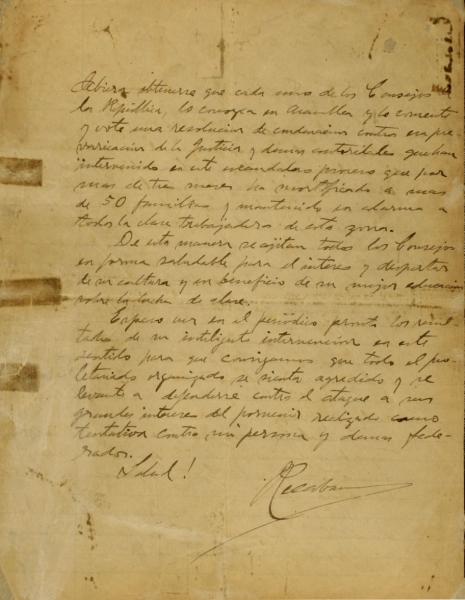 obtenerse que cada uno de los Consejos
la República, lo conozca en Asamblea y lo comente
y vote una resolución de condenación contra esa pre
varicación de la Justicia y demás autoridades que han
intervenido en este escandaloso proceso que por
más de tres meses ha mortificado a más
de 50 familias y mantenido en alarma a
toda la clase trabajadora de esta zona.
De esta manera se ajitan todos los Consejos
en forma saludable para el interés y despertar
de su cultura y en beneficio de su mejor educación
sobre la lucha de clase.
Espero ver en el periódico pronto los resul
tados de su inteligente intervención en este
sentido para que consigamos que todo el pro
letariado organizado se sienta agredido y se
levante a defenderse contra el ataque a sus
grandes intereses del porvenir realizado como
tentativa contra mi persona y demás fede-
rados.
Salud!
Recabarren